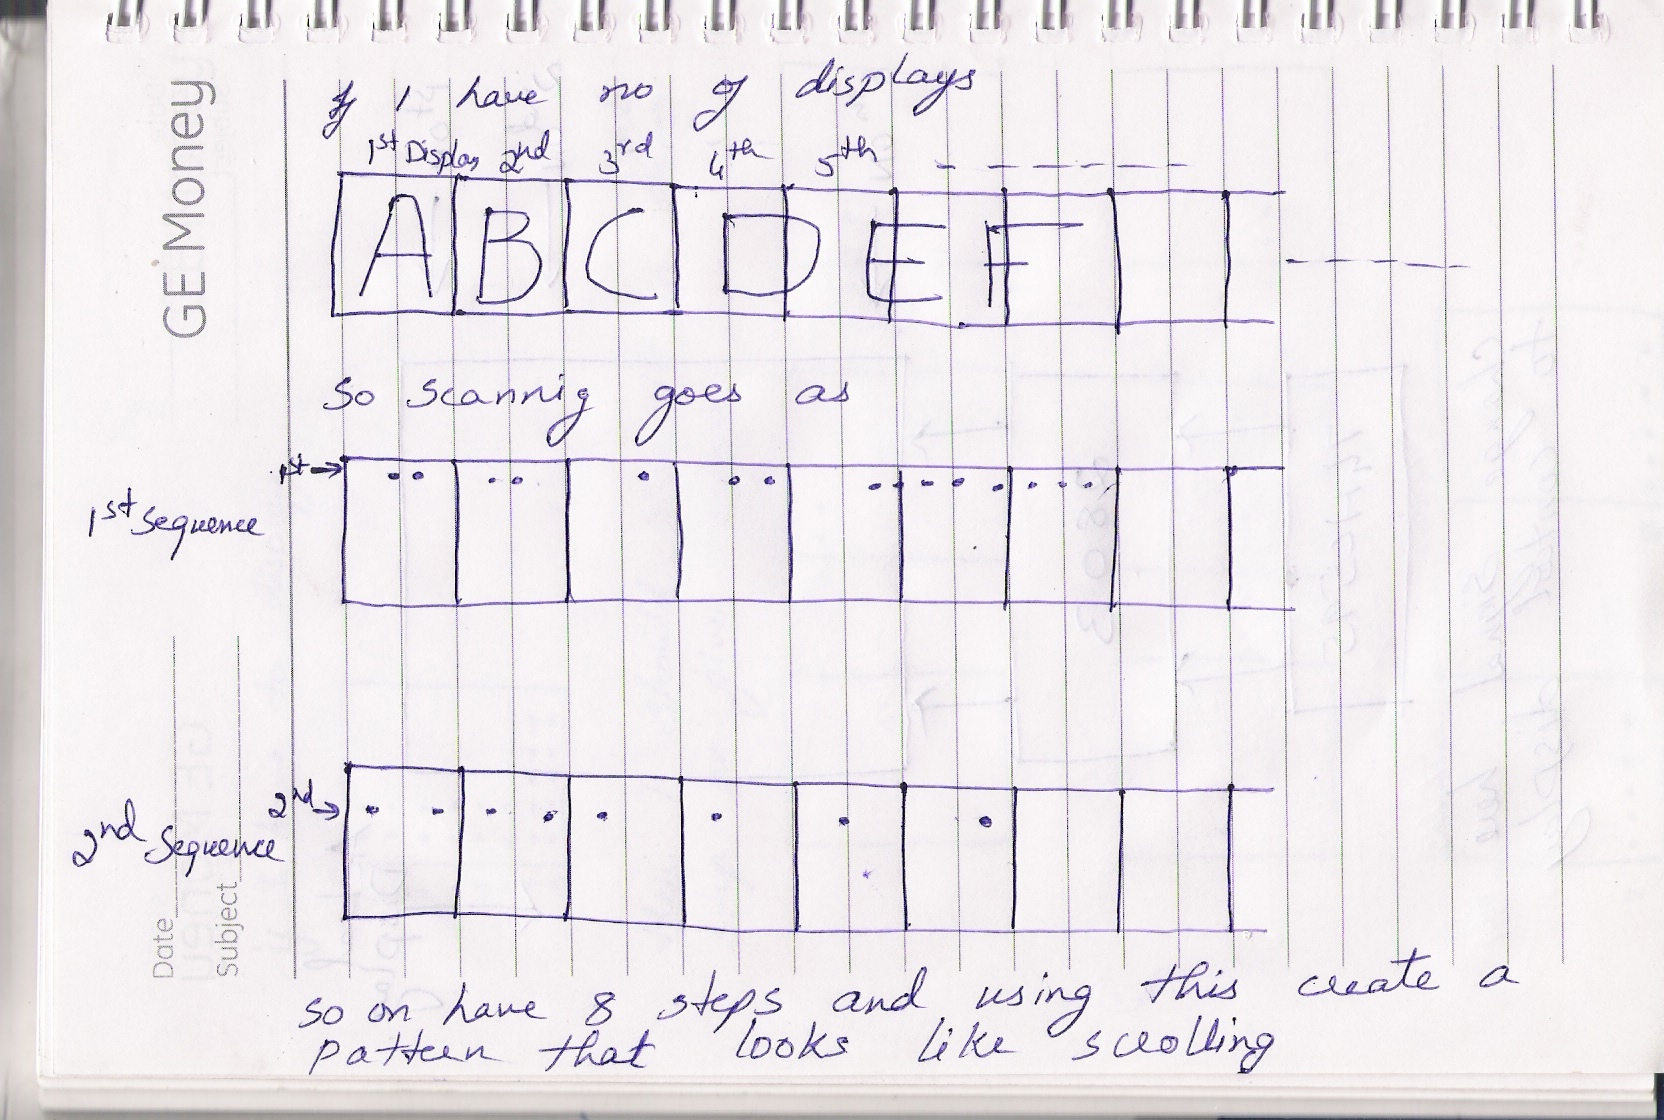 If I have no of displays
1st Display 2nd 3rd 4th 5th
A B C D E F
So scannig goes as
1st
1st Sequence
2nd
2nd Sequence
so on have 8 steps and using this create a
pattern that looks like scrolling
GE Money
Date
Subject